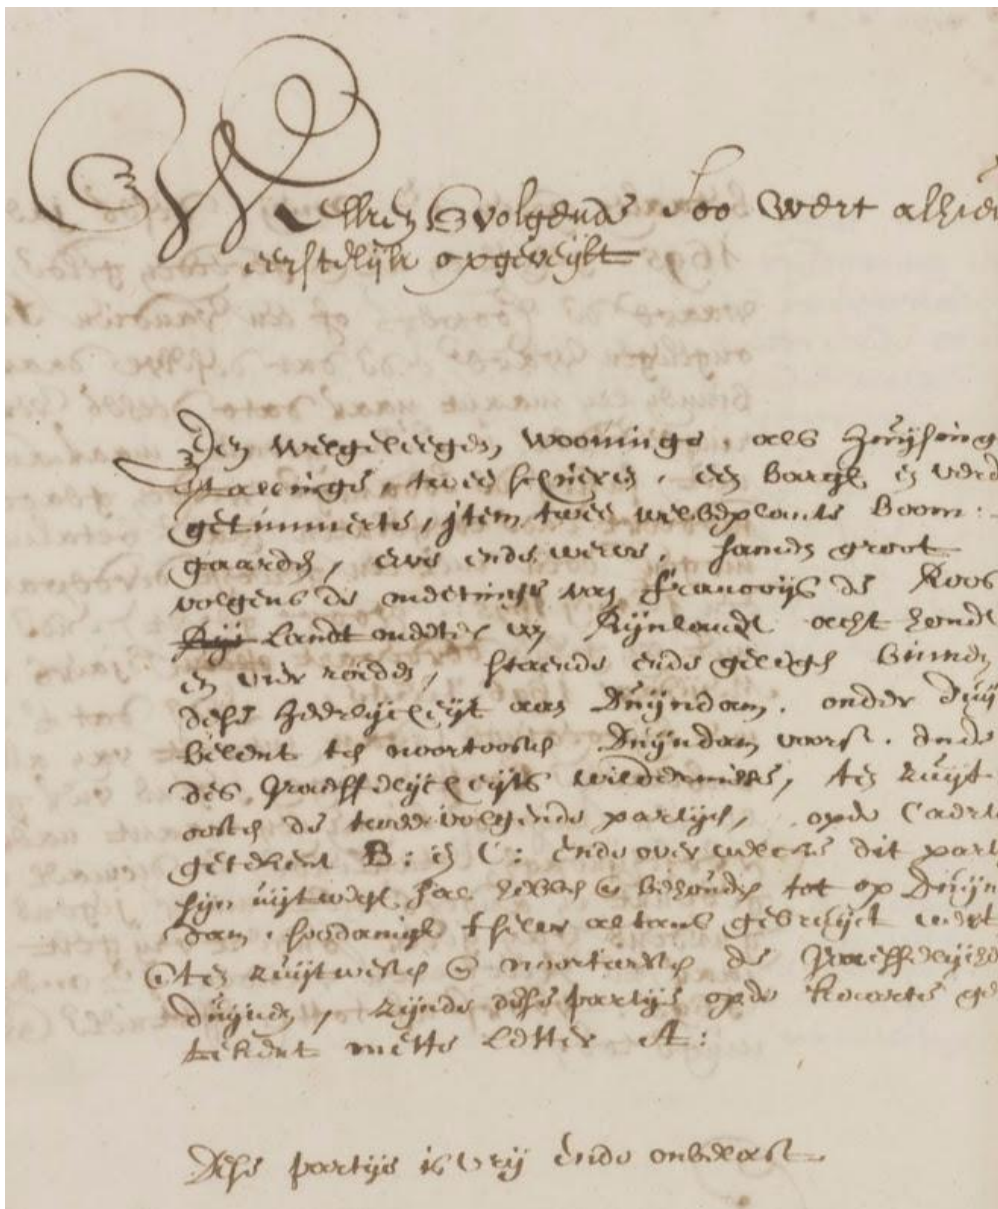 Welken volgende soo wert alhie
eerstelijk opgeveijlt
Een welgeleegen wooninge, als huijsing
stallinge, twee schuren, een bargh, en verd
getimmerte, jtem twee welbeplante boom:
gaarden, erve ende werve, samen groot
volgens de metinge van Francoijs de Roos
Landtmeter van Rijnlandt acht hondt
en vier roeden, staende ende gelegen binnen
dese Heerlijckheijt aan Duijndam, onder Duij
belent ten noortoosten Duijndam voors. ende
des Graeffelijckheijts wildernisse, ten zuijt
oosten de twee volgende partijen, opde Caert
getekent B: en C: ende over welcke dit part
sijn uijtwegh sal hebben en behouden tot op Duijn
dam, soodanigh t selve altans gebruijct wert
ten zuijtwesten en noortwesten de Graeffelijcke
duijnen, zijnde dese partije opde kaerte ge
tekent mette Letter A:
Dese partije is vrij ende onbelast